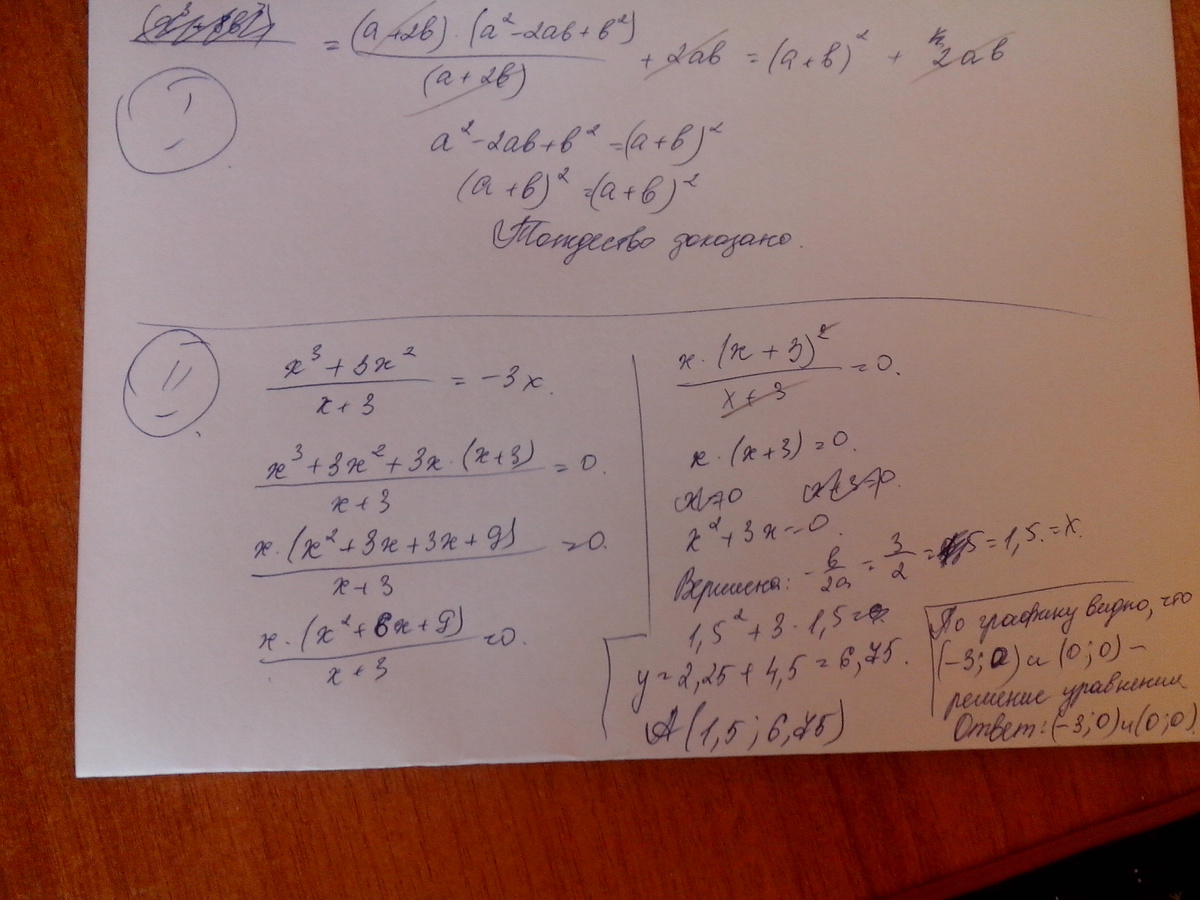 = (a+2b)·(a²-2ab+b²)/(a+2b) + 2ab = (a+b)² + 2ab
a²-2ab+b² = (a+b)²
(a+b)² = (a+b)²
Тождество доказано.
(x³+3x²)/(x+3) = -3x.
(x³+3x²+3x·(x+3))/(x+3) = 0.
x·(x²+3x+3x+9)/(x+3) = 0.
x·(x²+6x+9)/(x+3) = 0.
x·(x+3)²/(x+3) = 0.
x·(x+3) = 0.
x=0 x+3=0.
x²+3x=0.
Вершина: -b/2a = 3/2 = 1,5 = x.
1,5²+3·1,5=
y=2,25+4,5=6,75.
A(1,5; 6,75)
По графику видно, что
(-3; 0) и (0; 0) –
решение уравнения
Ответ: (-3; 0) и (0; 0).